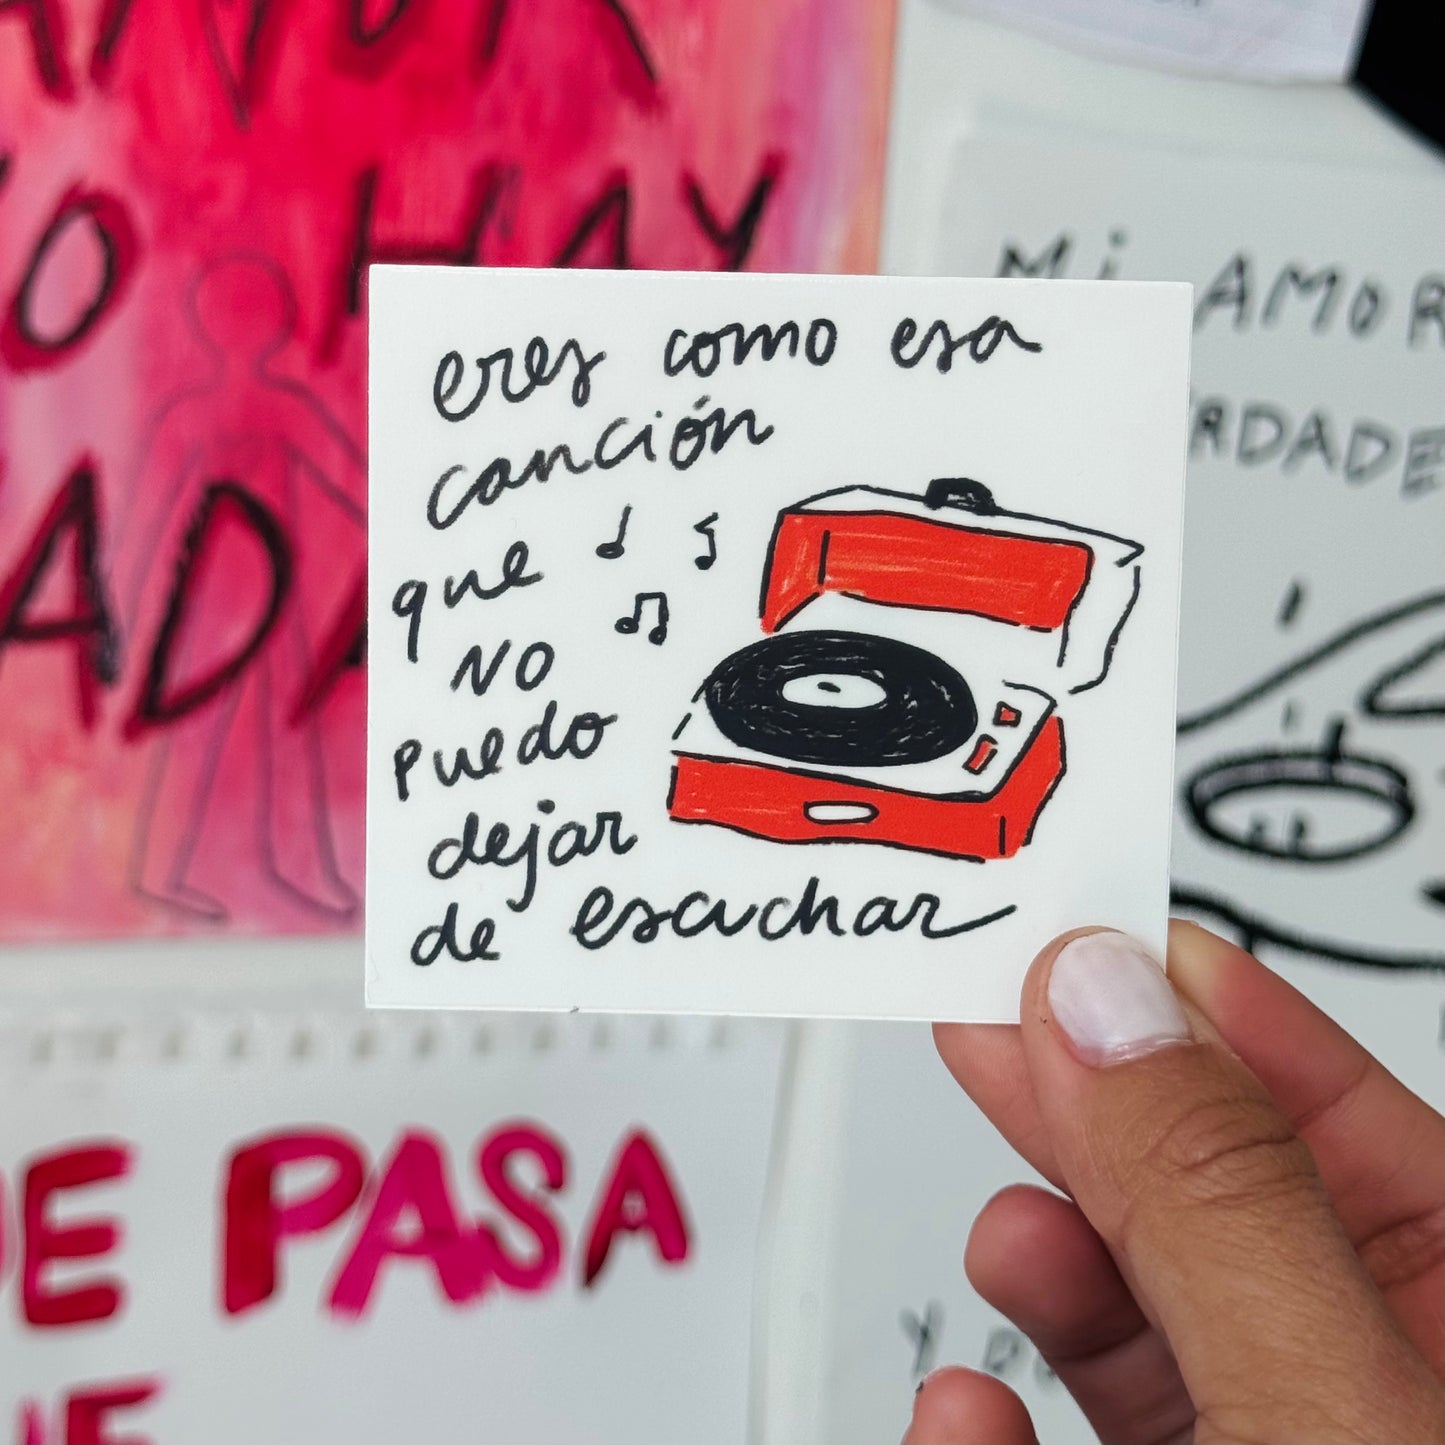 eres como esa
canción
que
no
puedo
dejar
de escuchar
HAY
Mi AMOR
DE PASA